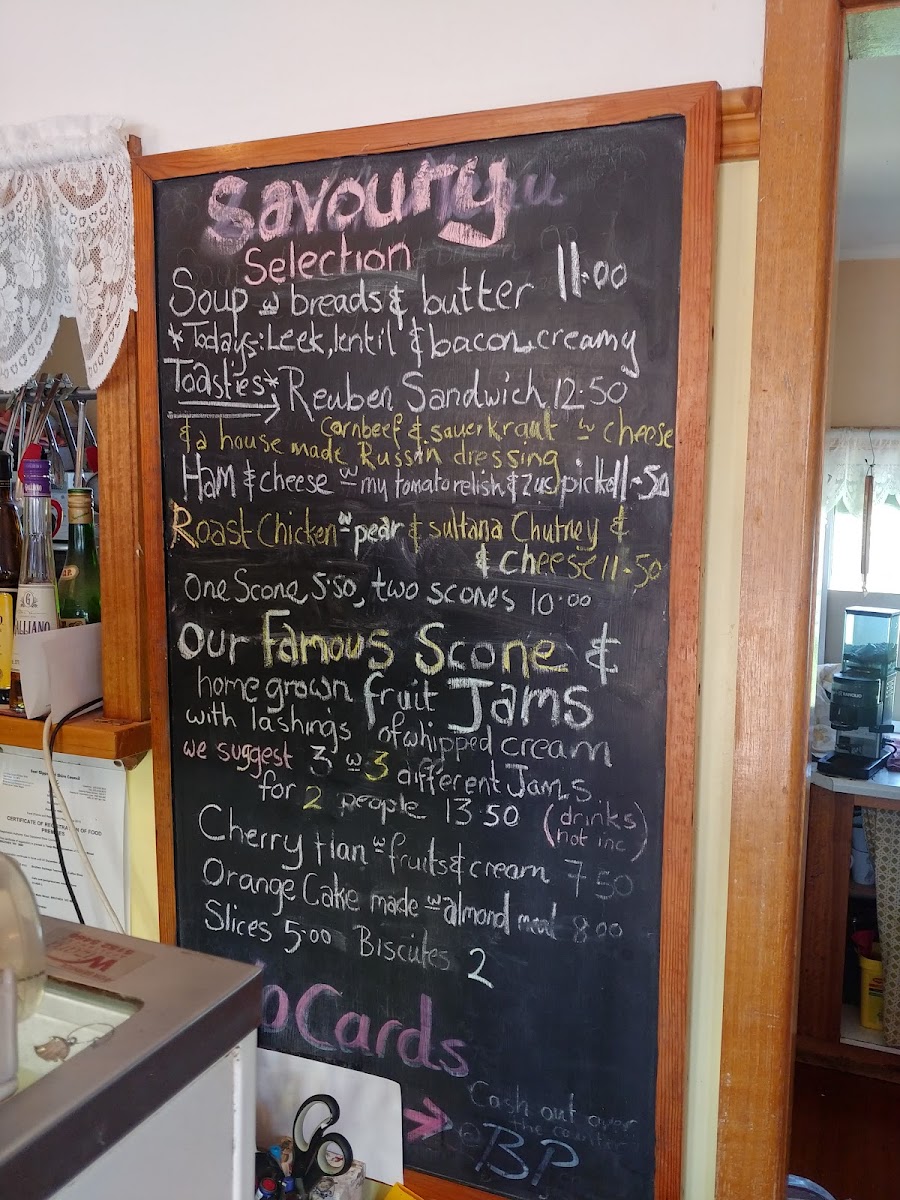 Savoury
Selection
Soup w breads & butter 11.00
*Todays: Leek, lentil & bacon, creamy
Toasties* Reuben Sandwich 12.50
Cornbeef & sauerkraut w cheese
& a house made Russin dressing
Ham & cheese w my tomato relish & zuc pickel 11.50
Roast Chicken w pear & sultana Chutney &
& cheese 11.50
One Scone 5.50, two scones 10.00
Our Famous Scone &
home grown fruit Jams
with lashings of whipped cream
we suggest 3 w 3 different Jams
for 2 people 13.50 (drinks
not inc)
Cherry Flan w fruits & cream 7.50
Orange Cake made w almond meal 8.00
Slices 5.00 Biscuites 2
o Cards
Cash out over
the counter
@ BP
CERTIFICATE OF REGISTRATION OF FOOD
PREMISES